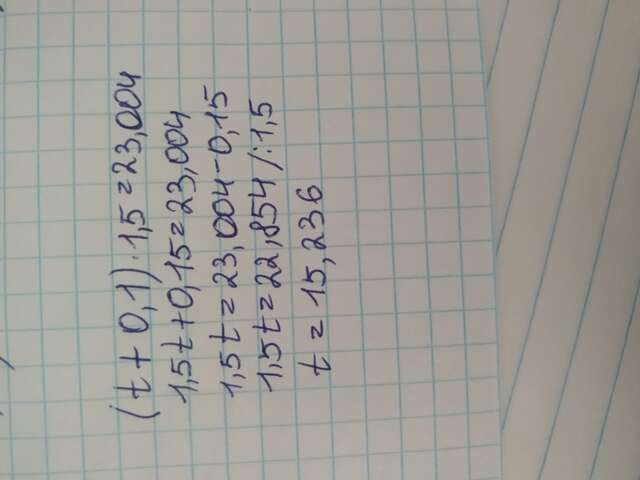 (t + 0,1) · 1,5 = 23,004
1,5t + 0,15 = 23,004
1,5t = 23,004 - 0,15
1,5t = 22,854 /:1,5
t = 15,236